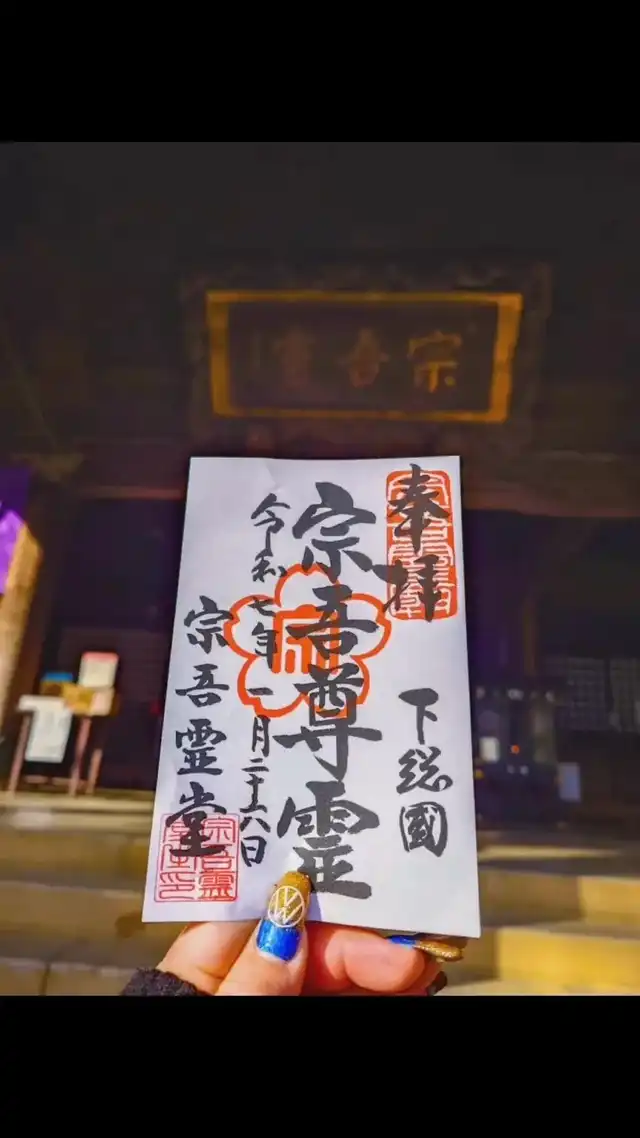 宗吾霊
奉拝
下総國
宗吾尊霊
令和七年一月二十六日
宗吾霊堂